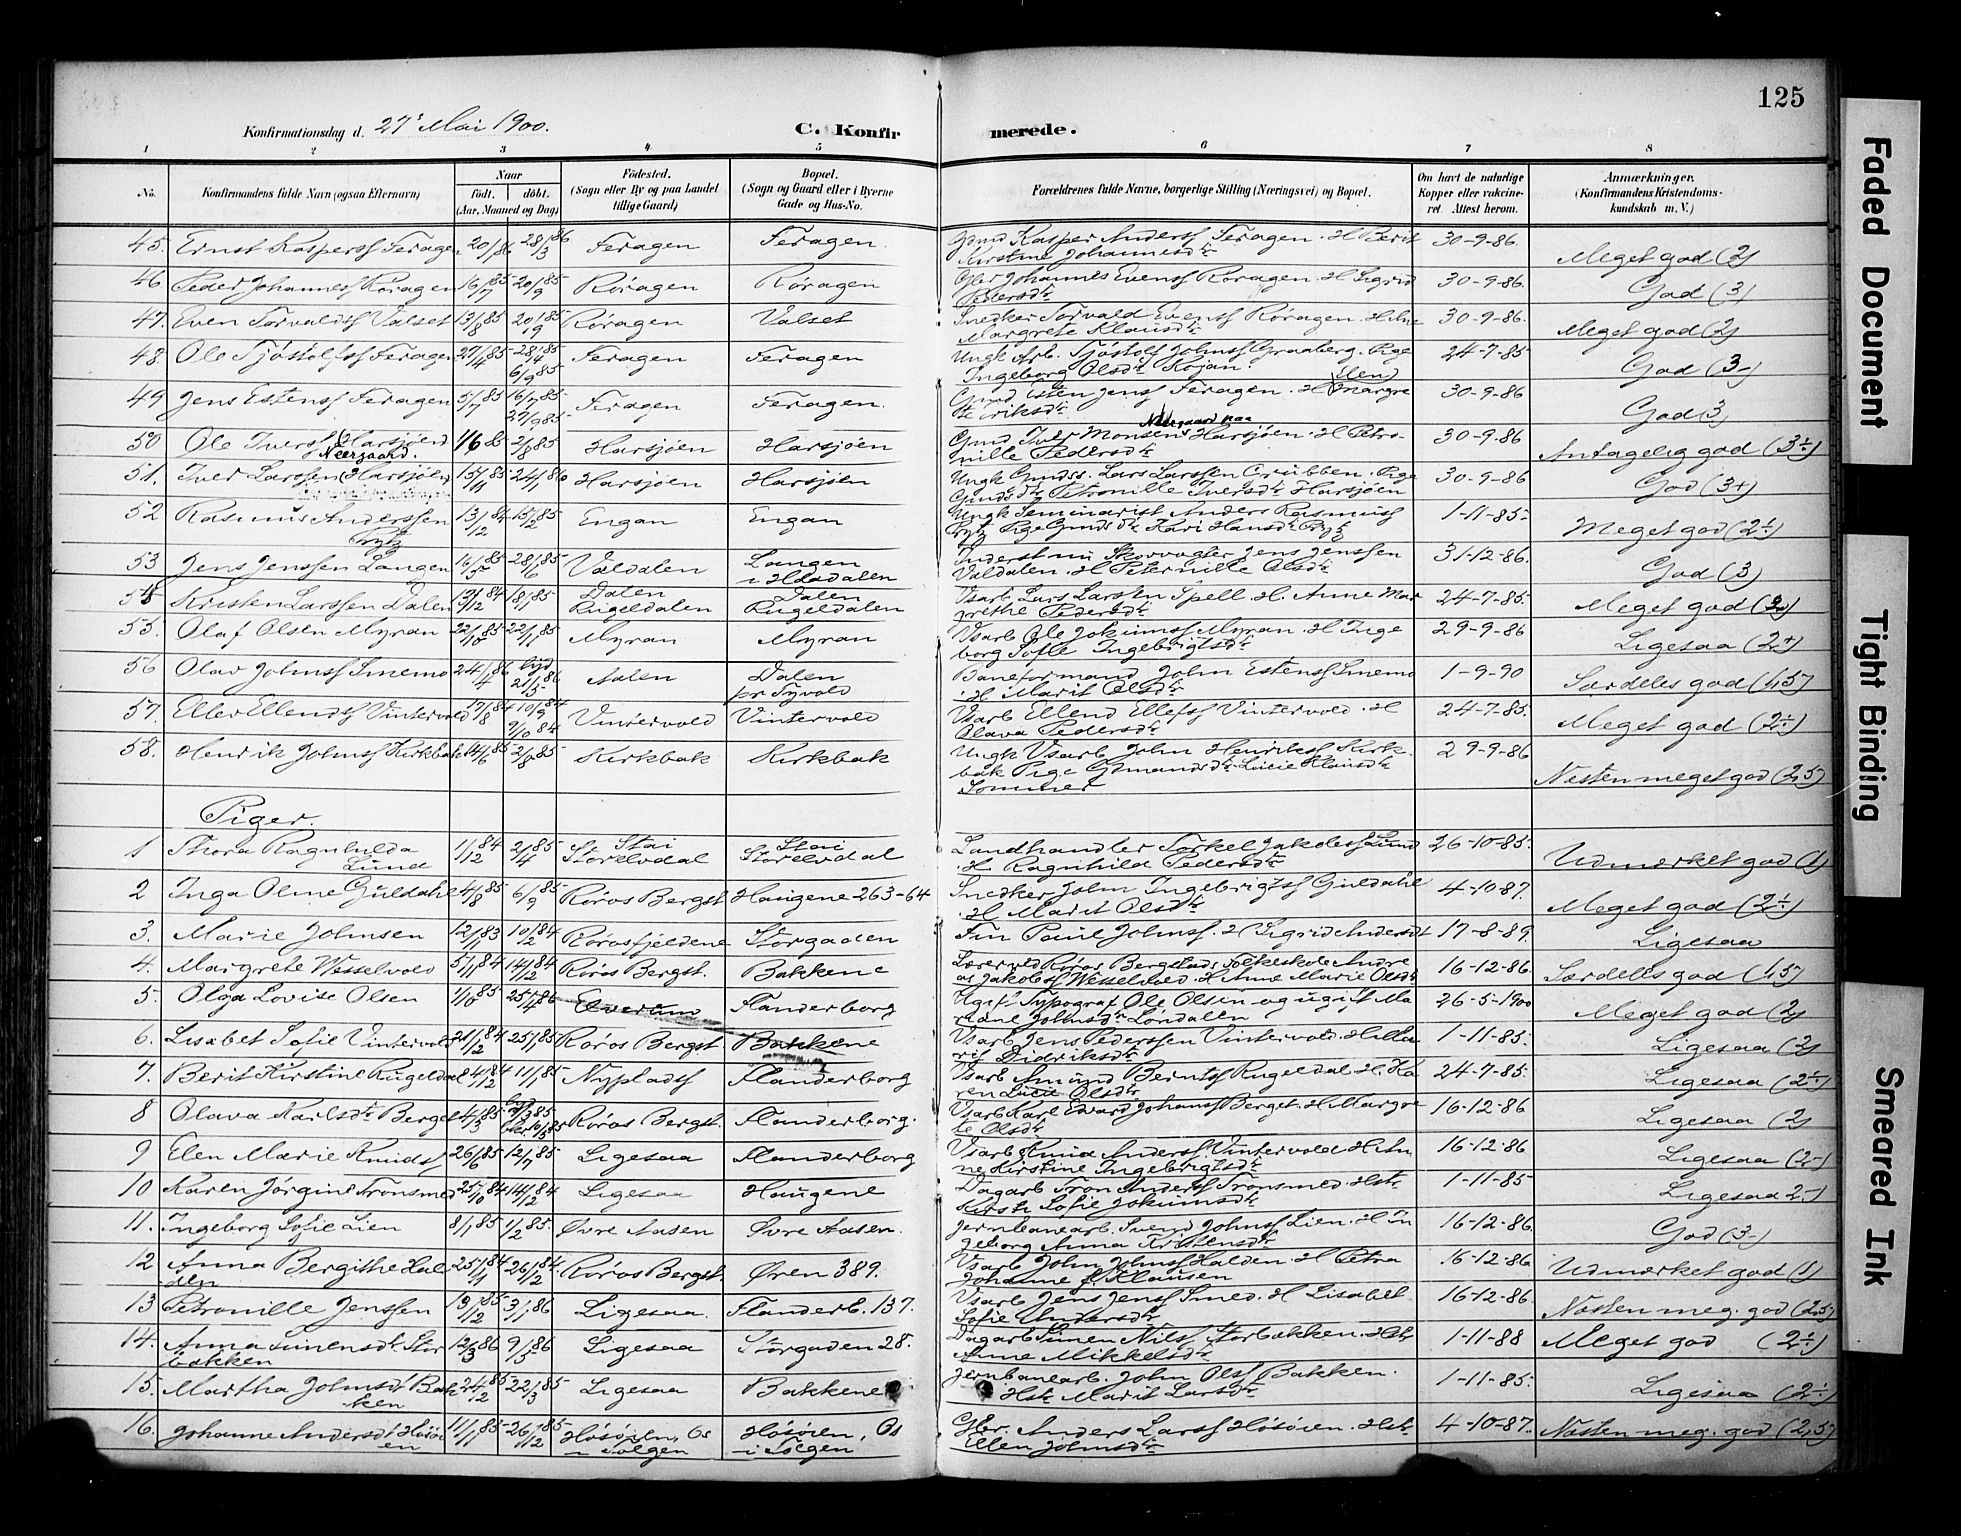 125
Konfirmationsdag d. 27de Mai 1900.
C. Konfir merede.
1 2 3 4 5 6 7 8
No. Konfirmandens fulde Navn (ogsaa Efternavn) Naar født. døbt. (Aar, Maaned og Dag) Fødested. (Sogn eller By og paa Landet tillige Gaard) Bopæl. (Sogn og Gaard eller i Byerne Gade og Hus-No. Forældrenes fulde Navne, borgerlige Stilling (Næringsvei) og Bopæl. Om havt de naturlige Kopper eller vakcineret. Attest herom. Anmærkninger. (Konfirmandens Kristendomskundskab m. V.)
45. Ernst Kaspersf Feragen 20/1 86 28/3 86 Feragen Feragen. Gmd Kasper Andersf Feragen. H Berit 30-9-86.
Kirstine Johannesdtr Meget god (2)
46 Peder Johannesf Røragen 16/7 85 20/9 85 Røragen Røragen Johannes Evensf Røragen. H Sigrid 30-9-86.
Pedersdtr God (3)
47. Even Torvaldsf Valset 13/8 85 20/9 85 Røragen Valset Snedker Torvald Evensf Røragen. H Ane 30-9-86.
Margrete Klausdtr Meget god (2)
48. Ole Tjøstolfsf Feragen 27/4 85 28/4 85 6/9 85 Feragen Feragen Ungk Arb. Tjøstolf Johnsf Graaberg. Pige 24-7-85
Ingeborg Olsdtr Kojan. God (3-)
49 Jens Estensf Feragen 5/7 85 16/7 85 27/9 85 Feragen Feragen. Gmd Esten Jensf Feragen. H Margre 30-9-86.
te Eriksdtr God 3
50 Ole Iversf (Harsjøen) Neergaard. 2/8 85 Harsjøen Harsjøen Gmd Iver Monsens Neergaard paa Harsjøen. H Petro- 30-9-86
nille Pedersdtr Antagelig god (3÷)
51. Iver Larssen (Harsjøen) 24/1 86 Harsjøen Harsjøen Ungk Gmdss. Lars Larssen Grubben. Pige 30-9-86
Gmdsdtr Petronille Iversdtr Harsjøen God (3+)
52 Rasmus Anderssen 13/12 84 15/2 85 Engan Engan Ungk Seminarist Anders Rasmus 1-11-85.
Pige Gmdsdtr Kari Hansdtr Meget god (2÷)
53 Jens Jenssen Langen 16/5 85 28/6 85 Valdalen Langen i Hådalen Inderst nu Skovvogter Jens Jenssen 31-12-86.
Valdalen. H Peternille Olsdtr God (3)
54 Kristen Larssen Dalen 18/1 85 Dalen Rugeldalen Dalen Rugeldalen Vsarb Lars Larssen Spell. H. Anne Mar 24-7-85.
grethe Pedersdtr Meget god (2)
55. Olaf Olsen Myran 22/10 85 22/11 85 Myran Myran Vsarb Ole Jokumsf Myran H Inge 29-9-86
borg Sofie Ingebrigtsdtr Ligesaa (2+)
56 Olav Johnsf Smemo 24/4 86 21/5 86 Aalen Dalen pr Tyvold Baneformand John Estensf Smemo 1-9-90
H Marit Olsdtr Særdeles god (1,5)
57. Ellef Ellendsf Vintervold 17/8 84 10/9 84 9/10 84 Vintervold Vintervold Vsarb Ellend Ellefsf Vintervold. H 24-7-85.
Olava Pedersdtr Meget god (2÷)
58. Henrik Johnsf Kirkbak 14/6 85 2/8 85 Kirkbak Kirkbak Ungk Vsarb John Henriksf Kirk- 29-9-86
bak Pige Gdmandsdtr Lucie Klausdtr
Sommer Næsten meget god (2,5)
Piger.
1 Thora Ragnhilda Lund 1/12 84 2/4 85 Stai Storelvdal Stai Storelvdal Landhandler Torkel Jakobsf Lund 26-10-85.
H. Ragnhild Pedersdtr Udmærket god (1)
2 Inga Oline Guldahl 4/8 85 6/9 85 Røros Bergst Haugene 263-64 Snedker John Ingebrigtsf Guldahl 4-10-87.
H Marit Olsdtr Meget god (2÷)
3. Marie Johnsen 12/11 83 10/2 84 Rørosfjeldene Storgaden Fin Paul Johnsf. H Sigrid Andersdt 17-8-89.
Ligesaa
4. Margrete Wesselvold 5/11 84 14/12 84 Røros Bergst. Bakkene Lærer ved Røros Bergstads Folkeskole Andre 16-12-86.
as Jakobsf Wesselvold H Anne Marie Olsdtr Særdeles god (1,5)
5. Olga Lovise Olsen 1/10 85 25/4 86 Elverum Flanderborg Typograf Ole Olsen og ugift Ma 26-5-1900
riane Johnsdtr Londalen Meget god (2)
6. Lisabet Sofie Vintervold 21/12 84 25/1 85 Røros Bergst Bakkene Vsarb Jens Pederssen Vintervold. H Ma 1-11-85.
rit Didriksdtr Ligesaa (2)
7. Berit Kirstine Rugeldal 8/12 84 11/1 85 Nypladsf Flanderborg Vsarb Amund Berntsf Rugeldal H. Ka 24-7-85.
ren Lucie Olsdtr Ligesaa (2÷)
8 Olava Karlsdtr Berget 4/3 85 Røros Bergst. Flanderborg. Vsarb Karl Edvard Johansf Berget. H Margre 16-12-86
te Olsdtr Ligesaa (2)
9 Elen Marie Knudsf 26/6 85 12/7 85 Ligesaa Flanderborg Vsarb Knud Andersf Vintervold H An 16-12-86
ne Kirstine Ingebrigtsdtr Ligesaa (2-)
10 Karen Jørgine Tronsmed 25/10 84 14/12 84 Ligesaa Haugene Dagarb Tron Andersf Tronsmed Hstr 1-11-85
Kirsti Sofie Jokumsdtr Ligesaa 2-)
11. Ingeborg Sofie Lien 8/1 85 1/2 85. Øvre Aasen Øvre Aasen. Jernbanearb. Svend Johnsf Lien. H In 16-12-86.
geborg Anna Kristensdtr God (3-)
12 Anna Bergithe Hal 25/11 84 26/12 84. Røros Bergst. Øren 389. Vsarb John Johnsf Halden H Petra 16-12-86
den Johanne f. Klausen Udmærket god (1)
13 Petronille Jenssen 19/12 85 3/1 86 Ligesaa. Flanderb. 137. Vsarb Jens Jensf Smed. H Lisabet 16-12-86.
Sofie Andersdtr Næsten meg. god (2,5)
14. Anna Simensdtr Stor 12/3 86 9/5 86 Ligesaa Storgaden 28. Dagarb Simen Nilsf Storbækken. Hstr 1-11-88 Meget god (2÷)
bækken Anne Mikkelsdtr
15. Martha Johnsdtr Bak 24/2 85 22/3 85 Ligesaa Bakkene Jernbanearb. John Olsf Bakken. 1-11-85.
ken Hstr Marit Larsdtr Ligesaa (2÷)
16. Johanne Andersdtr Høsøi 11/11 85 26/12 85 Høsøien, Os i Tolgen Høsøien, Os i Tolgen Gbr. Anders Larsf Høsøien. Hstr 4-10-87.
en Ellen Johnsdtr Næsten meg. god (2,5)
Faded Document
Tight Binding
Smeared Ink